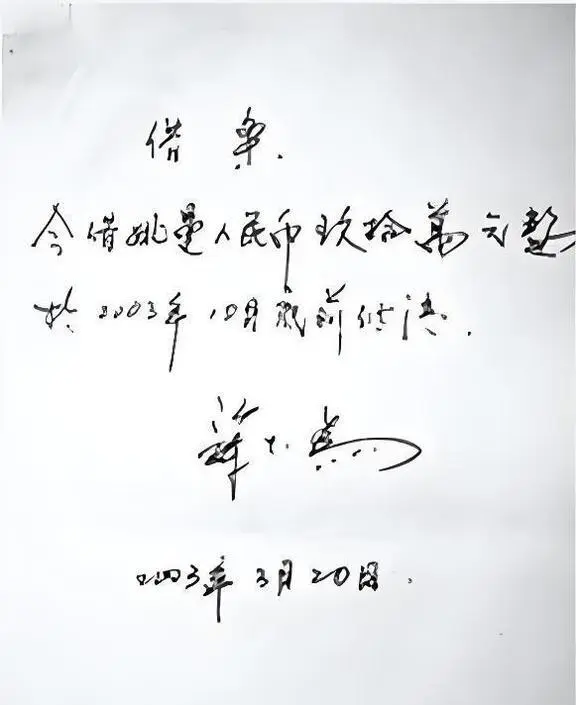 借 条.
今借姚量人民币玖拾萬元整
於2003年10月底前付清.
2003年3月20日.